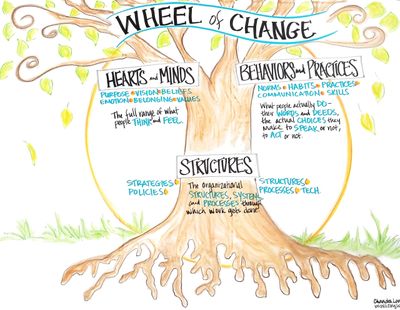 WHEEL of CHANGE
HEARTS and MINDS
PURPOSE VISION BELIEFS
EMOTION BELONGING VALUES
The full range of what
people THINK and FEEL.
BEHAVIORS and PRACTICES
NORMS HABITS PRACTICES
COMMUNICATION SKILLS
What people actually DO-
their WORDS and DEEDS,
the actual CHOICES they
make to SPEAK or not,
to ACT or not.
STRUCTURES
STRATEGIES
POLICIES
The organizational
STRUCTURES, SYSTEMS
and PROCESSES through
which work gets done.
STRUCTURES
PROCESSES TECH